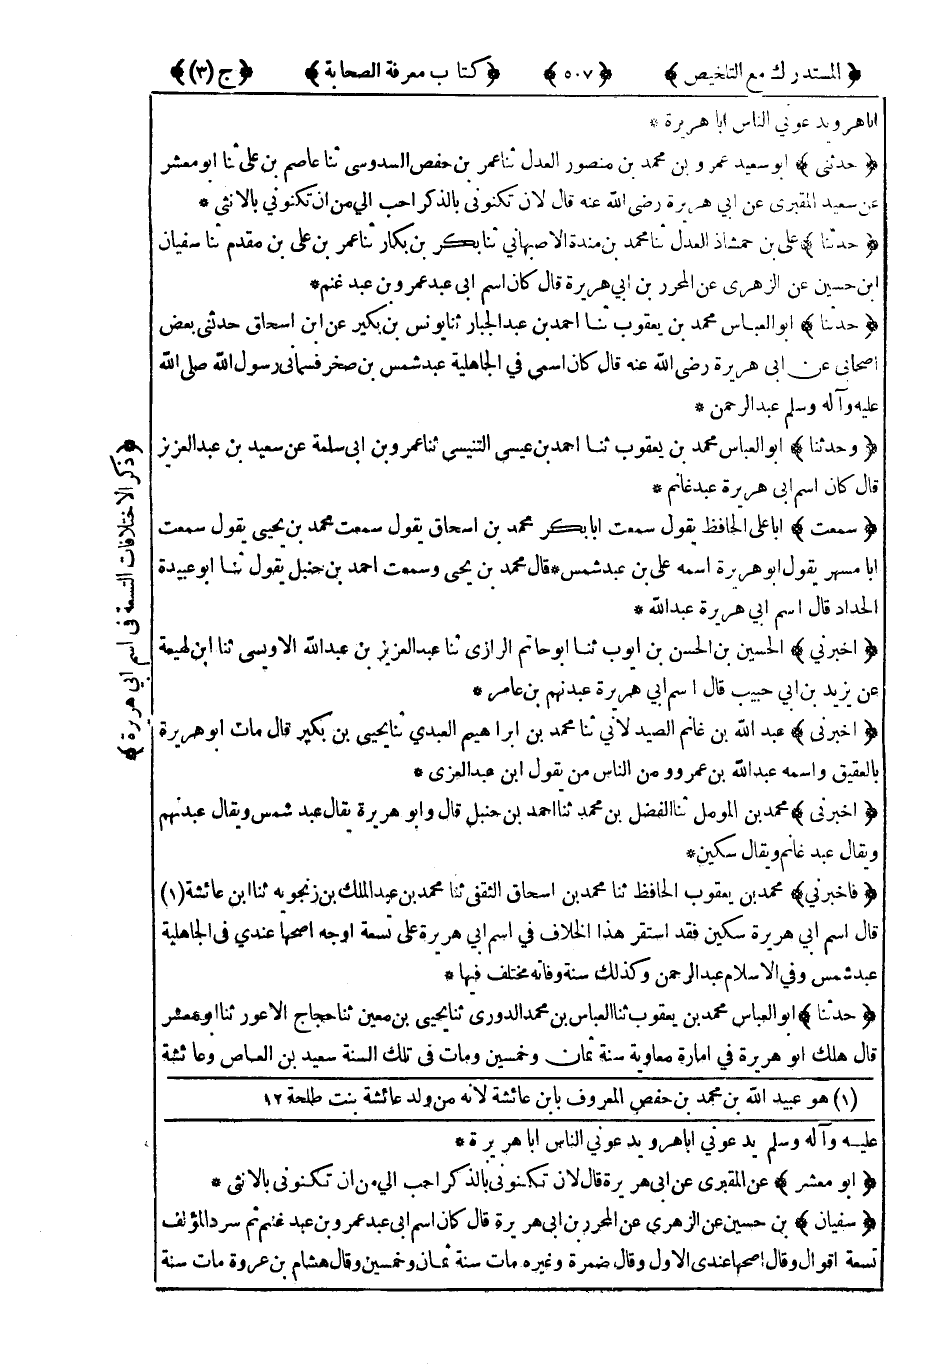 ﴿ المستدرك مع التلخيص ﴾ ﴿ ٥٠٧ ﴾ ﴿ كتاب معرفة الصحابة ﴾ ﴿ ج (٣) ﴾
اباهر ويدعوني الناس ابا هريرة *
﴿ حدثنى ﴾ ابو سعيد عمرو بن محمد بن منصور العدل ثنا عمر بن حفص السدوسى ثنا عاصم بن على ثنا ابو معشر
عن سعيد المقبرى عن ابي هريرة رضى الله عنه قال لان تكنونى بالذكر احب الي من ان تكنوني بالانثى *
﴿ حدثنا ﴾ على بن حمشاذ العدل ثنا محمد بن مندة الاصبهاني ثنا بكر بن بكار ثنا عمر بن على بن مقدم ثنا سفيان
ابن حسين عن الزهرى عن المحرر بن ابي هريرة قال كان اسم ابى عبد عمرو بن عبد غنم *
﴿ حدثنا ﴾ ابو العباس محمد بن يعقوب ثنا احمد بن عبد الجبار ثنا يونس بن بكير عن ابن اسحاق حدثنى بعض
اصحابى عن ابى هريرة رضى الله عنه قال كان اسمي في الجاهلية عبد شمس بن صخر فسمانى رسول الله صلى الله
عليه وآله وسلم عبد الرحمن *
﴿ وحدثنا ﴾ ابو العباس محمد بن يعقوب ثنا احمد بن عيسى التنيسي ثنا عمرو بن ابى سلمة عن سعيد بن عبد العزيز
قال كان اسم ابى هريرة عبد غانم *
﴿ سمعت ﴾ ابا على الحافظ يقول سمعت ابا بكر محمد بن اسحاق يقول سمعت محمد بن يحيى يقول سمعت
ابا مسهر يقول ابو هريرة اسمه على بن عبد شمس * قال محمد بن يحى وسمعت احمد بن حنبل يقول ثنا ابو عبيدة
الحداد قال اسم ابي هريرة عبد الله *
﴿ اخبرني ﴾ الحسين بن الحسن بن ايوب ثنا ابو حاتم الرازى ثنا عبد العزيز بن عبد الله الاويسى ثنا ابن لهيعة
عن يزيد بن ابي حبيب قال اسم ابي هريرة عبد نهم بن عامر *
﴿ اخبرنى ﴾ عبد الله بن غانم الصيدلاني ثنا محمد بن ابراهيم العبدي ثنا يحيى بن بكير قال مات ابو هريرة
بالعقيق واسمه عبد الله بن عمرو ومن الناس من يقول ابن عبد العزى *
﴿ اخبرنى ﴾ محمد بن المومل ثنا الفضل بن محمد ثنا احمد بن حنبل قال وابو هريرة يقال عبد شمس ويقال عبد نهم
ويقال عبد غانم ويقال سكين *
﴿ فاخبرني ﴾ محمد بن يعقوب الحافظ ثنا محمد بن اسحاق الثقفى ثنا محمد بن عبد الملك بن زنجويه ثنا ابن عائشة (١)
قال اسم ابي هريرة سكين فقد استقر هذا الخلاف في اسم ابي هريرة على تسعة اوجه اصحها عندي فى الجاهلية
عبد شمس وفي الاسلام عبد الرحمن وكذلك سنة وفاته مختلف فيها *
﴿ حدثنا ﴾ ابو العباس محمد بن يعقوب ثنا العباس بن محمد الدورى ثنا يحيى بن معين ثنا حجاج الاعور ثنا ابو معشر
قال هلك ابو هريرة في امارة معاوية سنة ثمان وخمسين ومات فى تلك السنة سعيد بن العاص وعائشة
﴿ ذكر الاختلافات التسعة فى اسم ابي هريرة ﴾
(١) هو عبيد الله بن محمد بن حفص المعروف بابن عائشة لانه من ولد عائشة بنت طلحة ١٢
عليه وآله وسلم يدعوني اباهر ويدعوني الناس ابا هريرة *
﴿ ابو معشر ﴾ عن المقبرى عن ابى هريرة قال لان تكنونى بالذكر احب الي من ان تكنونى بالانثى *
﴿ سفيان ﴾ بن حسين عن الزهرى عن المحرر بن ابى هريرة قال كان اسم ابى عبد عمرو بن عبد غنم ثم سرد المؤلف
تسعة اقوال وقال اصحها عندى الاول وقال ضمرة وغيره مات سنة ثمان وخمسين وقال هشام بن عروة مات سنة